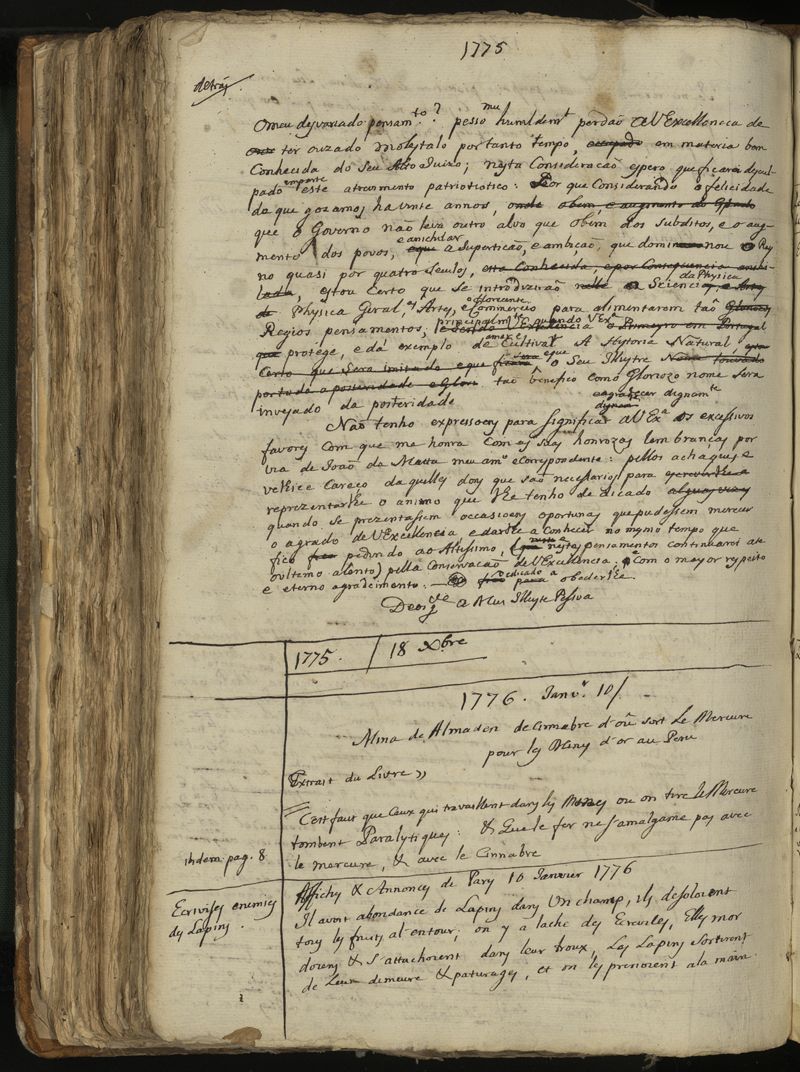 1775
detráz
O meu desvariado pensamto? pesso mu humildemt perdaõ a VExcellencia de
ter ouzado molestalo por tanto tempo, occupado em materia bem
Conhecida do Seu Alto Juizo; nesta Consideracaõ espero que ficarei descul-
pado em parte este atrevimento patriotico: Por que Considerando a felicidade
da que gozamos ha vinte annos, onde o bem e augmento do Estado
que o Governo naõ leva outro alvo que o bem dos subditos, e o aug-
mento dos povos, e anichilar a Superticaõ, e ambicaõ, que dominou o Rey
no quasi por quatro Seculos, esta Conhecida, e por Consequencia
estou Certo que Se introduziraõ a Sciencia da Physica
Physica Geral, as Artes, e o florecente Commercio para alimentarem taõ
Regios pensamentos; principalmte quando VExa o Primeyro em Portugal
que protége, e dá exemplo de Cultivar A Hystoria Natural
Certo que Sera imitado e que Sera que o Seu Illustre Nome
portado a posteridade e Glori taõ benefico como Gloriozo nome Sera
invejado da posteridade
e agradecer dignamte
Naõ tenho expressoens para significar a VExa os excessivos
favores Com que me honra Com as suas honrozas lembranças por
via de Joaõ da Matta meu amo e Correspondente: pellos achaques e
velhice Careço daquelles dons que saõ necessarios para
reprezentarlhe o animo que lhe tenho dedicado algumas vezes
quando Se prezentassem occasioens oportunas que pudessem mereur
o agrado de VExcellencia e darlhe a Conhecer no mesmo tempo que
fico pedindo ao Altissimo, (que nestes pensamentos continuarei ate
o ultemo alento) pella Conservacaõ de VExcellencia, e Com o mayor respeito
e eterno agradecimento. dedicado a obedecerlhe.
Deos gde a Mui Illustre Pessoa
1775. / 18 Xbre
1776. Janvr. 10/
Mina de Almaden de Cinnabre d'où sort Le Mercure
pour les Mines d'or au Peru
Extrait du Livre »
C'est faut que Ceux qui travaillent dans les Mines ou on tire le Mercure
tombent Paralytiques: & que le fer ne s'amalgame pas avec
ibidem pag. 8
le mercure, & avec le Cinnabre
Affiches & Annonces de Parys 10 Janvier 1776
Ecrivises enemies
des Lapins.
Il avoit abondance de Lapins dans Un champ, ils desoloient
tous les fruits al entour; on y a laché des Ecrevises, Elles mor
doient & s'attachoient dans leur troux, Les Lapins Sortirent
de Leur demeure & paturages, et on les prenoient a la main.